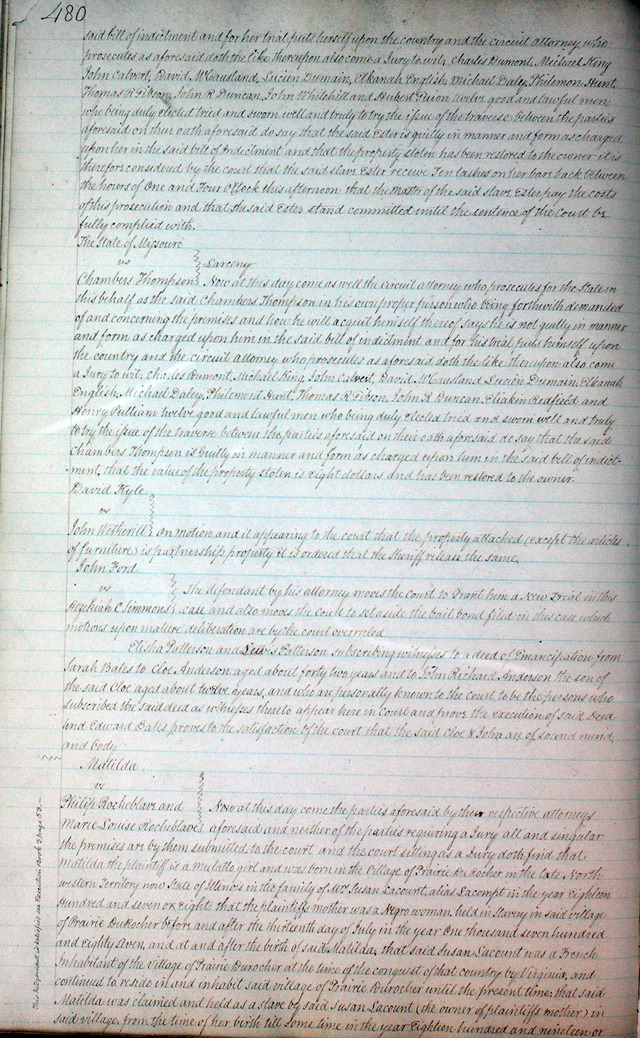 480
said bill of indictment and for her trial puts herself upon the country and the circuit attorney who
prosecutes as aforesaid doth the like thereupon also come a Jury to wit, Charles Dumont, Michael King
John Calvert, David McCausland, Lucien Dumain, Elkanah English, Michael Daley, Philemon Hunt,
Thomas R Gibson, John R Duncan, John Whitehill and Hubert Guion twelve good and lawful men
who being duly elected tried and sworn well and truly to try the issue of the traverse between the parties
aforesaid on their oath aforesaid do say that the said Ester is guilty in manner and form as charged
upon her in the said bill of Indictment and that the property stolen has been restored to the owner it is
therefore considered by the court that the said slave Ester receive Ten lashes on her bare back between
the hours of One and Four O'clock this afternoon that the master of the said slave Ester, pay the costs
of this prosecution and that the said Ester stand committed until the sentence of the Court be
fully complied with.
The State of Missouri
vs
Larceny
Chambers Thompson Now at this day come as well the circuit attorney who prosecutes for the State in
this behalf as the said Chambers Thompson in his own proper person who being forthwith demanded
of and concerning the premises and how he will acquit himself thereof says he is not guilty in manner
and form as charged upon him in the said bill of indictment and for his trial puts himself upon
the country and the circuit attorney who prosecutes as aforesaid doth the like thereupon also come
a Jury to wit, Charles Dumont, Michael King, John Calvert, David McCausland Lucien Dumain, Elkanah
English, Michael Daley, Philement Hunt, Thomas R Gibson, John R Duncan, Eliakin Redfield and
Henry Pulliam twelve good and lawful men who being duly elected tried and sworn well and truly
to try the issue of the traverse between the parties aforesaid on their oath aforesaid do say that the said
Chambers Thompson is guilty in manner and form as charged upon him in the said bill of indict-
ment, that the value of the property stolen is eight dollars and has been restored to the owner.
David Kyle
vs
John Wetherill On motion and it appearing to the court that the property attached (except the articles
of furniture) is partnership property it is ordered that the Sheriff release the same.
John Ford
vs
The defendant by his attorney moves the Court to Grant him a New Trial in this
Hezekiah C Simmons case and also moves the Court to set aside the bail bond filed in this case which
motions upon mature deliberation are by the court overruled
Elisha Patterson and Lewis Patterson subscribing witnesses to a deed of Emancipation from
Sarah Bales to Cloe Anderson aged about forty two years and to John Richard Anderson the son of
the said Cloe aged about twelve years, and who are personally known to the court to be the persons who
subscribed the said deed as witnesses thereto appear here in Court and prove the execution of said Deed
and Edward Bales proves to the satisfaction of the court that the said Cloe & John are of sound mind
and body
Matilda
vs
Philip Rocheblave and Now at this day come the parties aforesaid by their respective attorneys
Marie Louise Rocheblave aforesaid and neither of the parties requiring a Jury all and singular
the premises are by them submitted to the court and the court sitting as a Jury doth find that
Matilda the plaintiff is a mulatto girl and was born in the Village of Prairie Durocher in the late North
western Territory now State of Illinois in the family of Mrs Susan Lacount, alias Lacompt in the year Eighteen
Hundred and seven or Eight; that the plaintiffs mother was a Negro woman, held in Slavery in said village
of Prairie DuRocher before and after the thirteenth day of July in the year One thousand seven hundred
and eighty seven, and at and after the birth of said Matilda, that said Susan Lacount was a French
Inhabitant of the Village of Prairie Durocher at the time of the conquest of that country by Virginia, and
continued to reside in and inhabit said village of Prairie Durocher until the present time, that said
Matilda was claimed and held as a slave by said Susan Lacount (the owner of plaintiffs mother) in
said village, from the time of her birth till some time in the year Eighteen hundred and nineteen or
This Judgment is satisfied see Execution Book